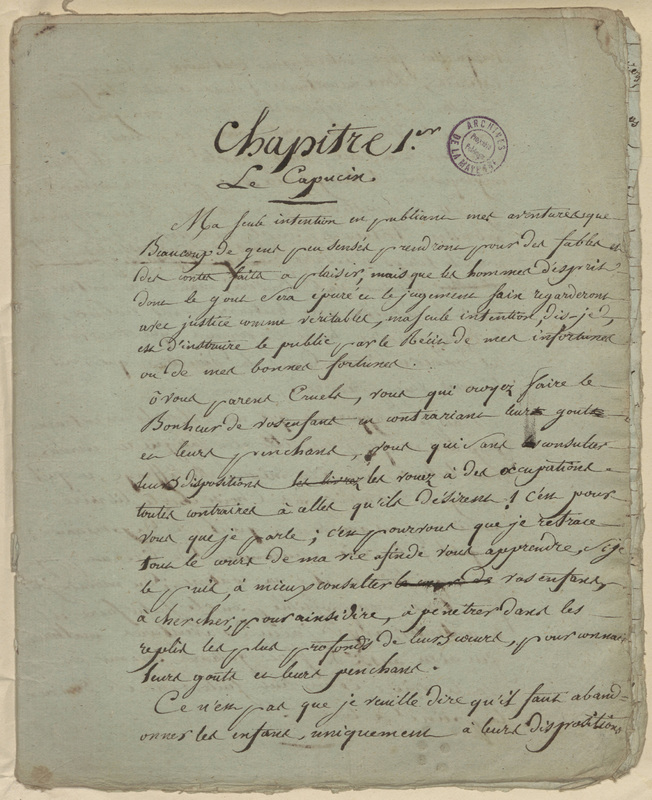 Chapitre 1.er
Le Capucin.
ARCHIVES
DE LA MAYENNE
Ma seule intention en publiant mes aventures que
Beaucoup de gens peu sensés prendront pour des fables et
des contes faits a plaisir, mais que les hommes d'esprit
dont le gout sera épuré et le jugement sain regarderont
avec justice comme véritables, ma seule intention, dis-je,
est d'instruire le public par le Récit de mes infortunes
ou de mes bonnes fortunes.
ô vous parens Cruels, vous qui croyez faire le
Bonheur de vos enfans en contrariant leurs gouts
et leurs penchans, vous qui sans consulter
leurs dispositions les livrez les vouez à des occupations
toutes contraires à celles qu'ils désirent! c'est pour
vous que je parle; c'est pour vous que je retrace
tout le cours de ma vie afin de vous apprendre, si je
le puis, à mieux consulter vos enfans,
à chercher, pour ainsi dire, à pénétrer dans les
replis les plus profonds de leurs cœurs, pour connai
leurs gouts et leurs penchans.
Ce n'est pas que je veuille dire qu'il faut aband-
onner les enfans, uniquement à leurs dispositions